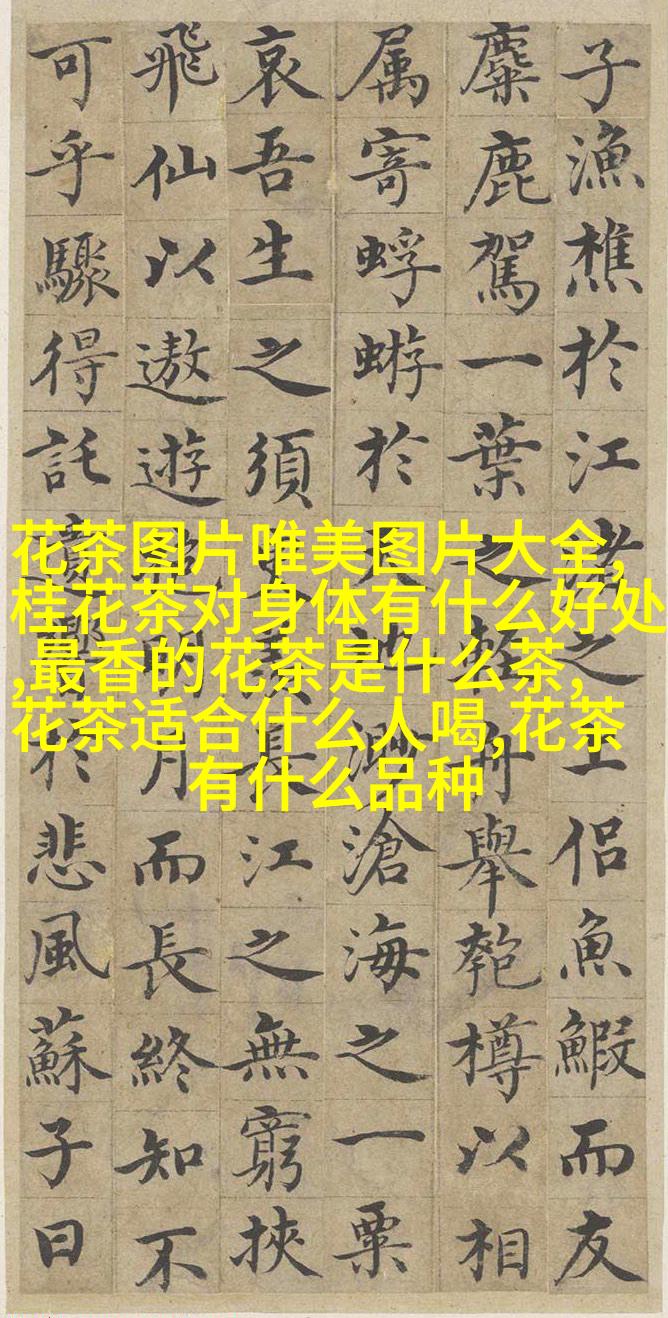 子漁樵於江渚之上侶魚鰕而友
麋鹿駕一葉之輕舟舉匏樽以相
属寄蜉蝣於天地渺滄海之一粟
哀吾生之須臾羨長江之無窮挾
飛仙以遨遊抱明月而長終知不
可乎驟得託遺響於悲風蘇子曰
花茶图片唯美图片大全,
桂花茶对身体有什么好处
,最香的花茶是什么茶,
花茶适合什么人喝,花茶
有什么品种